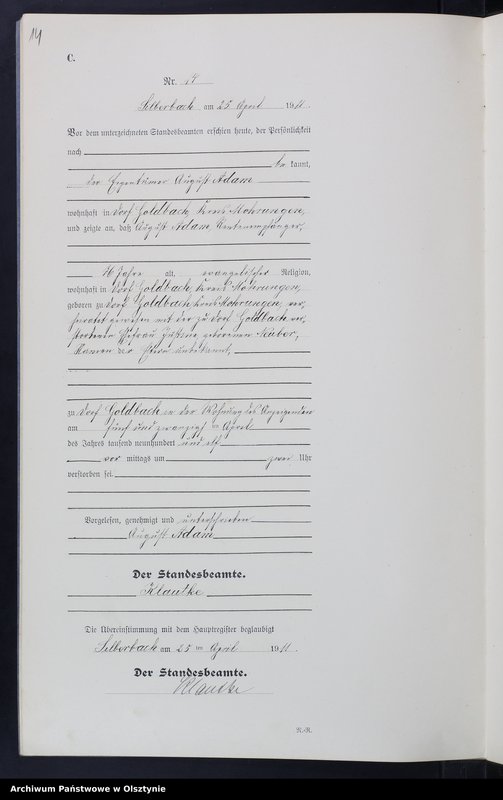 14
C.
Nr. 14
Silberbach am 25 April 1911.
Vor dem unterzeichneten Standesbeamten erschien heute, der Persönlichkeit
nach
be kannt,
der Eigentümer August Adam
wohnhaft in Dorf Goldbach, Kreis Mohrungen,
und zeigte an, daß August Adam, Rentenempfänger,
76 Jahre alt, evangelischer Religion,
wohnhaft in Dorf Goldbach, Kreis Mohrungen,
geboren zu Dorf Goldbach Kreis Mohrungen, ver-
heiratet gewesen mit der zu Dorf Goldbach ver-
storbenen Ehefrau Justine geborenen
Namen der Eltern unbekannt,
zu Dorf Goldbach in der Wohnung des Anzeigenden
am fünf und zwanzigsten April
des Jahres tausend neunhundert und elf
vor mittags um zwei Uhr
verstorben sei.
Vorgelesen, genehmigt und unterschrieben
August Adam
Der Standesbeamte.
Klautke
Die Übereinstimmung mit dem Hauptregister beglaubigt
Silberbach am 25 ten April 1911.
Der Standesbeamte.
Klautke
R.-R.
Archiwum Państwowe w Olsztynie